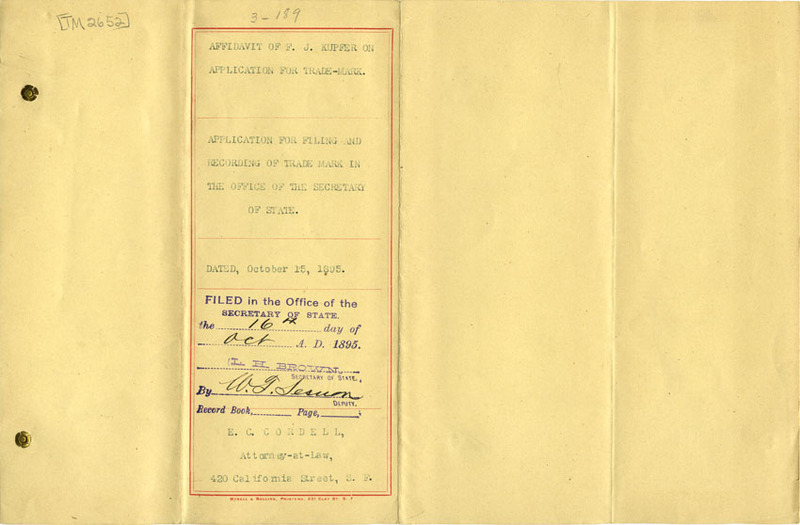 [TM2652]
3-189
AFFIDAVIT OF F. J. KUPFER ON
APPLICATION FOR TRADE-MARK.
APPLICATION FOR FILING AND
RECORDING OF TRADE MARK IN
THE OFFICE OF THE SECRETARY
OF STATE.
DATED, October 15, 1895.
FILED in the Office of the
SECRETARY OF STATE.
the 16th day of
Oct A. D. 1895.
L. H. BROWN,
SECRETARY OF STATE.
By W. T. Sesnon
DEPUTY.
Record Book, Page,
E. C. CORDELL,
Attorney-at-Law,
420 California Street, S. F.
& ROLLINS, PRINTERS, CLAY ST. S. F.